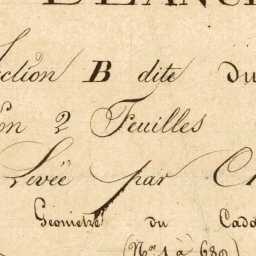 Section B dite du
En 2 Feuilles
Levée par Ch
Géomètre du Cada
(Nos 1 à 680)